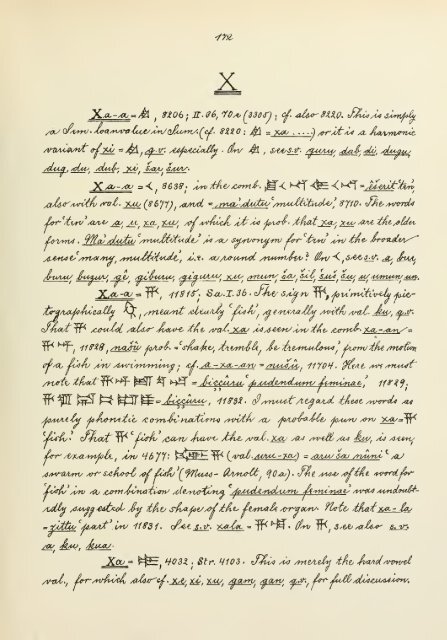 172
X
Xa-a = 𒄭, 8206; II. 86, 70.a (3305); cf. also 8220. This is simply
a Sem. loanvalue in Sum. (cf. 8220: 𒄭 = xa ....) or it is a harmonic
variant of xi = 𒄭, q.v. especially. On 𒄭, see s.v. guru, dab, di, dugu,
dug, du, dub, xi, šar, šur.
Xa-a = 𒌋, 8638; in the comb. = ešerit 'ten',
also with val. xu (8677), and = ma'dutu 'multitude,' 8710. The words
for 'ten' are a, u, xa, xu, of which it is prob. that xa, xu are the older
forms. Ma'dutu 'multitude' is a synonym for 'ten' in the broader
sense 'many, multitude', i.e. a round number? On 𒌋, see s.v. a, bur,
buru, buzur, gê, giburu, giguru, xu, mun, ša, šil, šuš, šu, u, umun, un.
Xa-a = 𒄩, 11815; Sa. I. 36. The sign 𒄩, primitively pic-
tographically, meant clearly 'fish', generally with val. ku, q.v.
That 𒄩 could also have the val. xa is seen in the comb. xa-an =
𒄩 𒀭, 11828, našû prob. = 'shake, tremble, be tremulous,' from the motion
of a fish in swimming; cf. a-xa-an = nušû, 11704. Here we must
note that = biççuru 'pudendum feminae,' 11829;
= biççûru, 11832. I must regard these words as
purely phonetic combinations with a probable pun on xa = 𒄩
'fish.' That 𒄩 'fish' can have the val. xa as well as ku, is seen,
for example, in 4677: (val. uru-xa) = aru ša nûni 'a
swarm or school of fish' (Muss-Arnolt, 90a). The use of the word for
'fish' in a combination denoting 'pudendum feminae' was undoubt-
edly suggested by the shape of the female organ. Note that xa-la
= zittu 'part' in 11831. See s.v. xala = 𒄩 𒆷. On 𒄩, see also s.v.
a, ku, kua.
Xa = , 4032; Str. 4103. This is merely the hard vowel
val., for which also cf. xe, xi, xu, gam, gan, q.v., for full discussion.